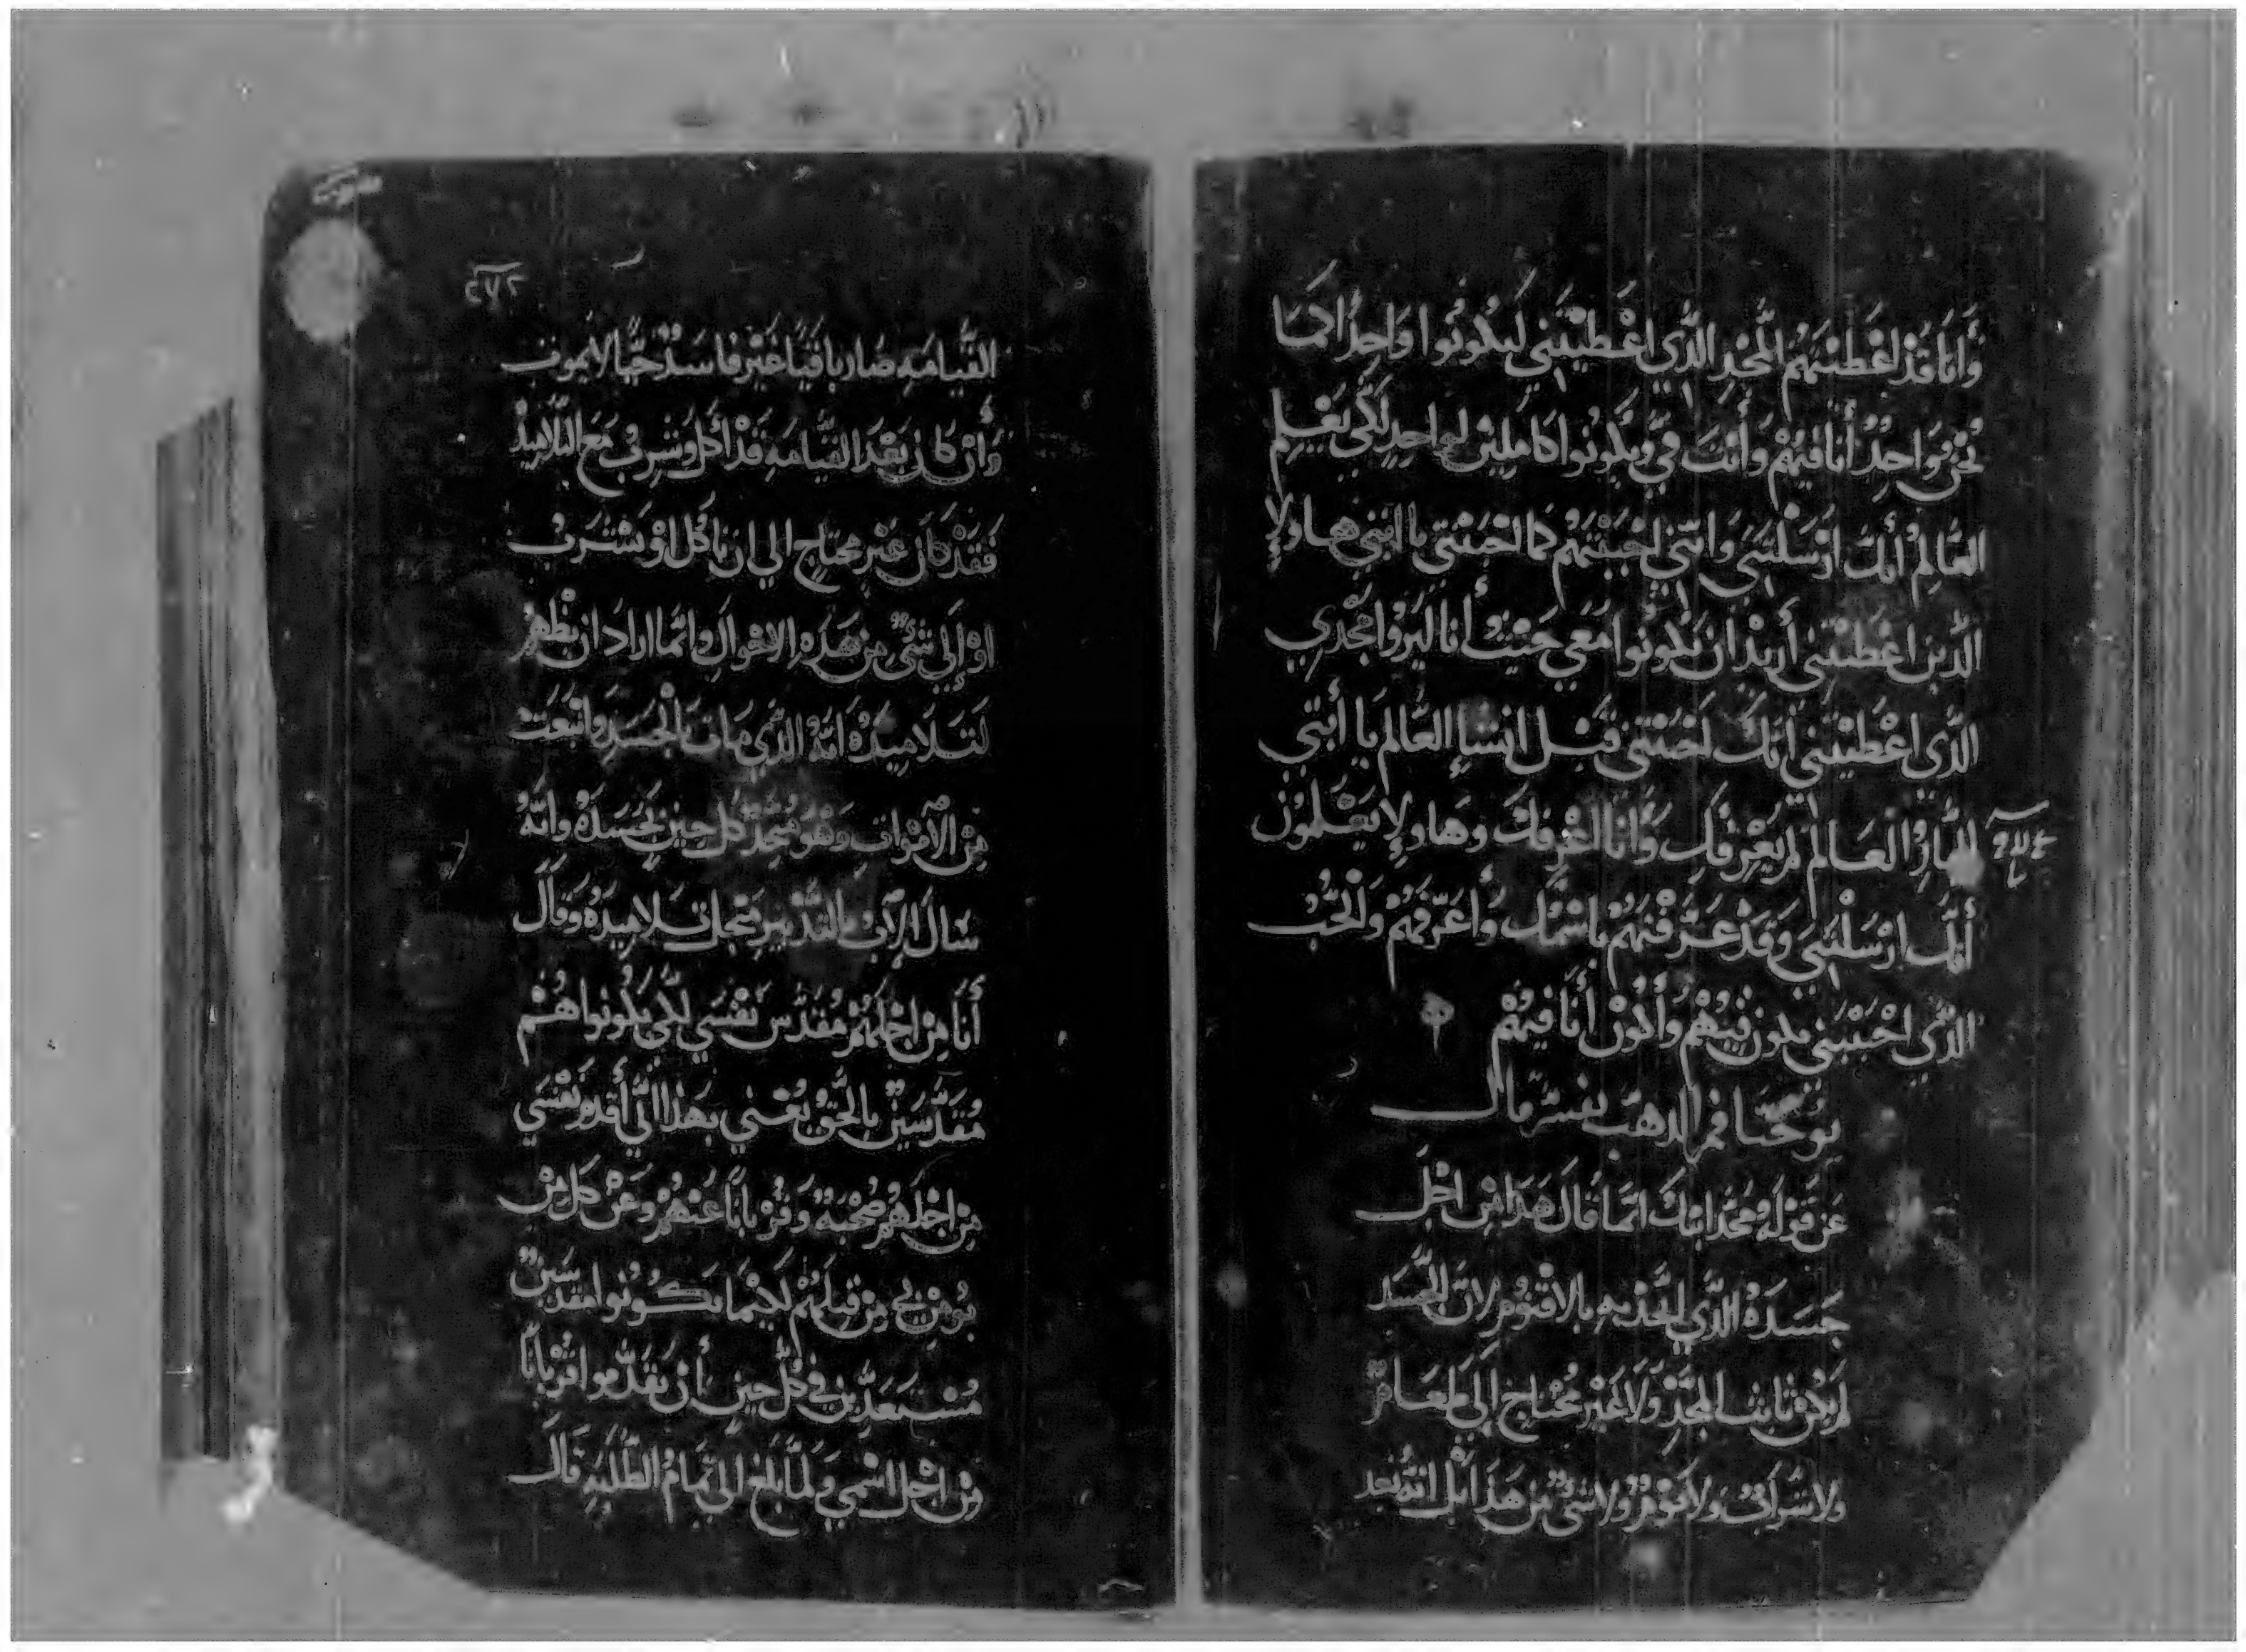 وَأَنَا قَدْ اعْطَيْتَهُمُ المَجْدِ الَّذِي اعْطَيْتَنِي لَيكُونُوا وَاحِدًا كمَا
نَحْن وَاحِدٌ أَنَا فيهُمْ وَأَنْتَ فِيَّ ويكُونُوا كامِلينْ لواحِدٍ لَكَي يَعْلَم
العَّالِمْ أنك ارْسَلْتَنِي وَانَّنِي احْبَبْتَهُمْ كمَا احْبَبْتَنِي ياابتي هاولاِ
الَّذين اعْطَيْتَنِي أُرِيْدُ ان يَكُونُوا مَعِي حَيْث أَنا ليَروُا مَجْدِي
الَّذِي اعْطَيْتَنِي انكَ احْبَبْتَنِي قَبْل انشاءِ العَّالم يَا أَبَتِي
البَّارُ العَالم لم يَعْرفكِ وَأَنا اعْرِفك وهَاولاِ يَعْلَمُون
أنك ارْسَلْتَنِي وَقَدْ عَرَّفْتَهُمْ باسْمك وأُعَرّفهُمْ والحُبُّ
الَّذي احْبَبْتَنِي يكون فيْهُمْ وَأكُونْ أَنَا فيهُمْ
يوحَنا فم الدهَب يفسّر قال
عَن قَوْلَهِ مَجّد ابنك انّمَا قَال هَذَا مِن اجْل
جَسَدَهُ الَّذِي اتحدَ بهِ بالاقنُومِ لانَّ الجَسَد
لم يكن ثابت المَجْدِ وَلَا غَيْر مُحْتاج إلَى طعَامٍ
ولاشَرابٍ وَلانَوْمٍ ولاشىٍ مِن هَذَا بَل انهُ بَعد
٢٧٢
القيَّامَهِ صَار باقيًا غَيْر فاسدٍ حَيًّا لا يموت
وَأن كان بَعْدَ القيَّامَهِ قَدْ أكَل وشَرِبَ مَعَ التلاميذ
فَقَدْ كَان غَيْر محتَاج الي ان يَاكل اوْ يَشْرَب
اوْ إلَي شيٍ مِن هَذهِ الاحْوال وانّما اراد ان يظْهر
لتَلاميدهُ انهُ الَّذِي مات بالجَسَدِ وانبَعَث
مِن الأمْواتِ وهُو مَجدٌ كل حينٍ بجَسَدهُ وانَّهُ
سَال الآبِ بالتدْبيرِ مِن اجل تلاميدهُ وقَال
أنَا مِن اجْلَهُمْ مُقدّس نَفْسَي لكَي يكُونوا هُمْ
مُقدَّسَيْن بالحَقِّ يَعْني بهَذا انّي أقدم نَفْسَي
مِن اجْلهُمْ ضحْيَهً وقُرْبانًا عَنْهُمْ وعَنْ كل مَنْ
يُومِن بي مِن قبلَهُمْ لَكيْمَا يَكُونُوا مقدسَينْ
مُسْتَعَدِّين في كُلِّ حينٍ أن يقَدّموا قُرْبانًا
مِن اجْل اسْمي وَلمَّا بَلغ الي تَمَام الطّلْبَهِ قَال